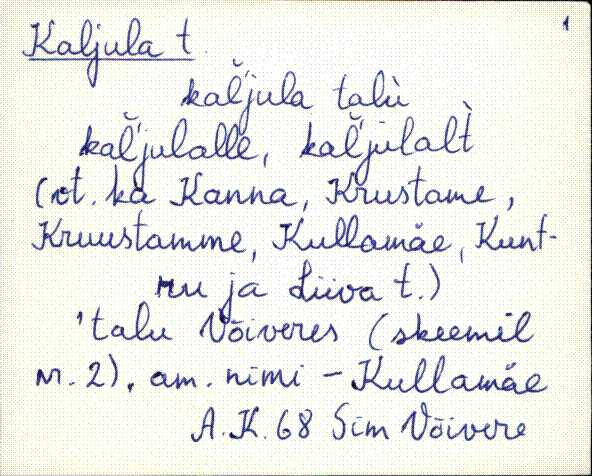 1
Kaljula t.
kal̆'jula talù
kal̆'julalle, kal̆'jùlalt̀
(vt. ka Kanna, Krustame,
Kruustamme, Kullamäe, Kunt-
ru ja Liiva t.)
'talu Võiveres (skeemil
nr. 2), am. nimi – Kullamäe
A.K. 68 Sim Võivere